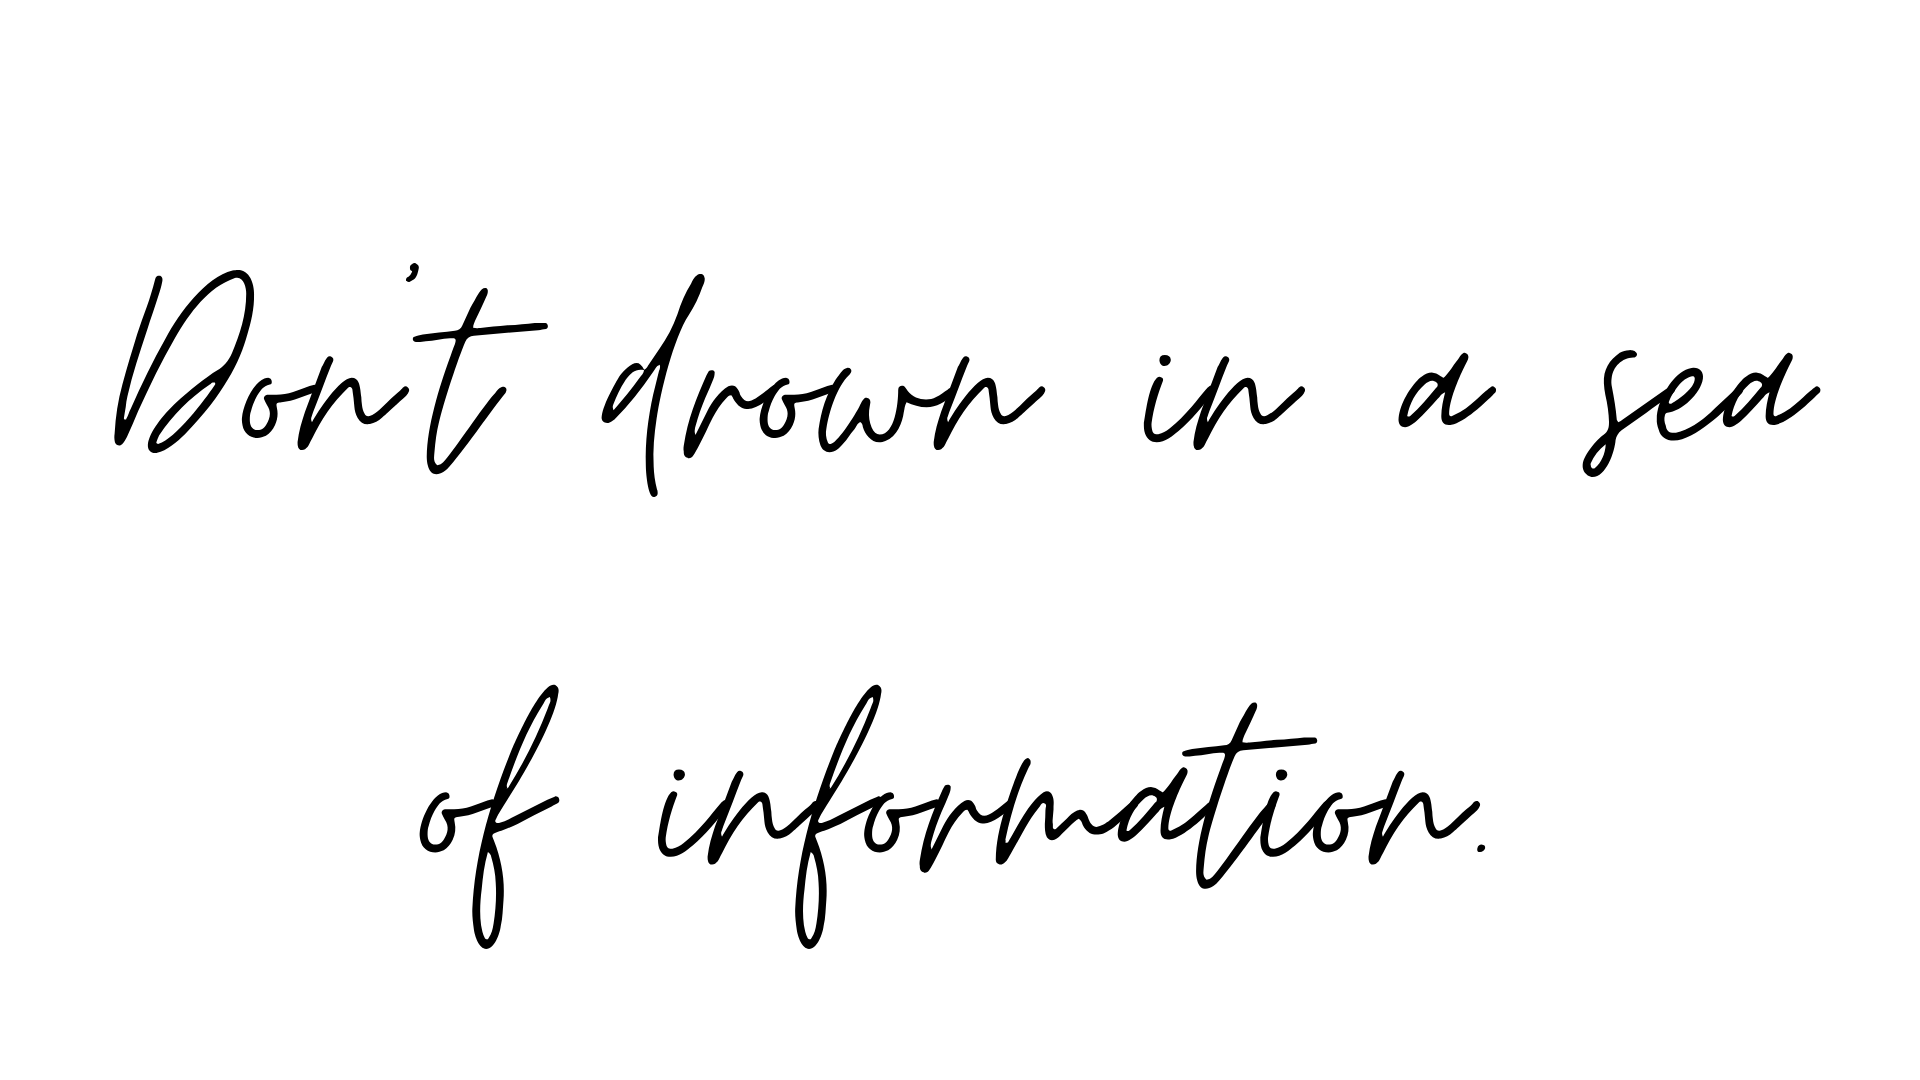 Don't drown in a sea
of information.